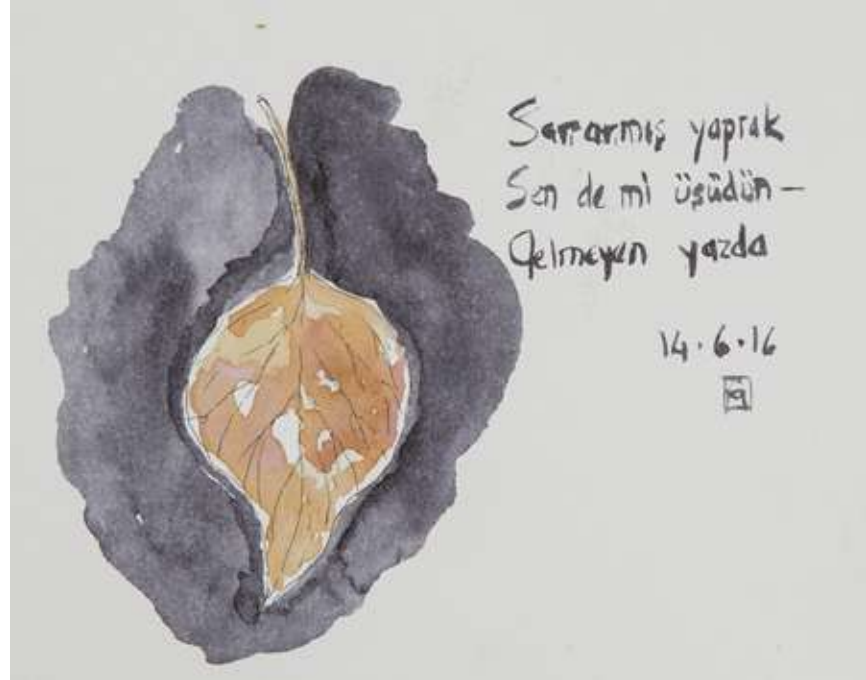 Sararmış yaprak
Sen de mi üşüdün –
Gelmeyen yazda
14.6.16